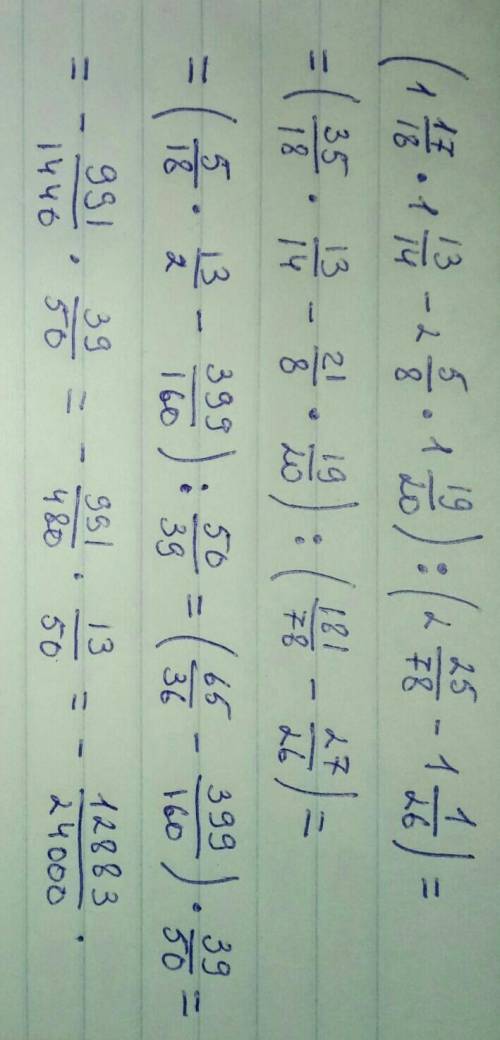 (1 17/18 · 1 13/14 - 2 5/8 · 1 19/20) : (2 25/78 - 1 1/26) =
= (35/18 · 13/14 - 21/8 · 19/20) : (181/78 - 27/26) =
= (5/18 · 13/2 - 399/160) : 50/39 = (65/36 - 399/160) · 39/50 =
= - 991/1440 · 39/50 = - 991/480 · 13/50 = - 12883/24000.